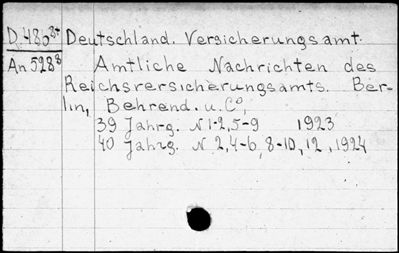 D.480 8+ Deutschland. Versicherungsamt.
An 528 8 Amtliche Nachrichten des
Reichsversicherungsamts. Ber-
lin, Behrend. u. Co,
39 Jahrg. N 1-2,5-9 1923
40 Jahrg. N 2,4-6,8-10,12,1924